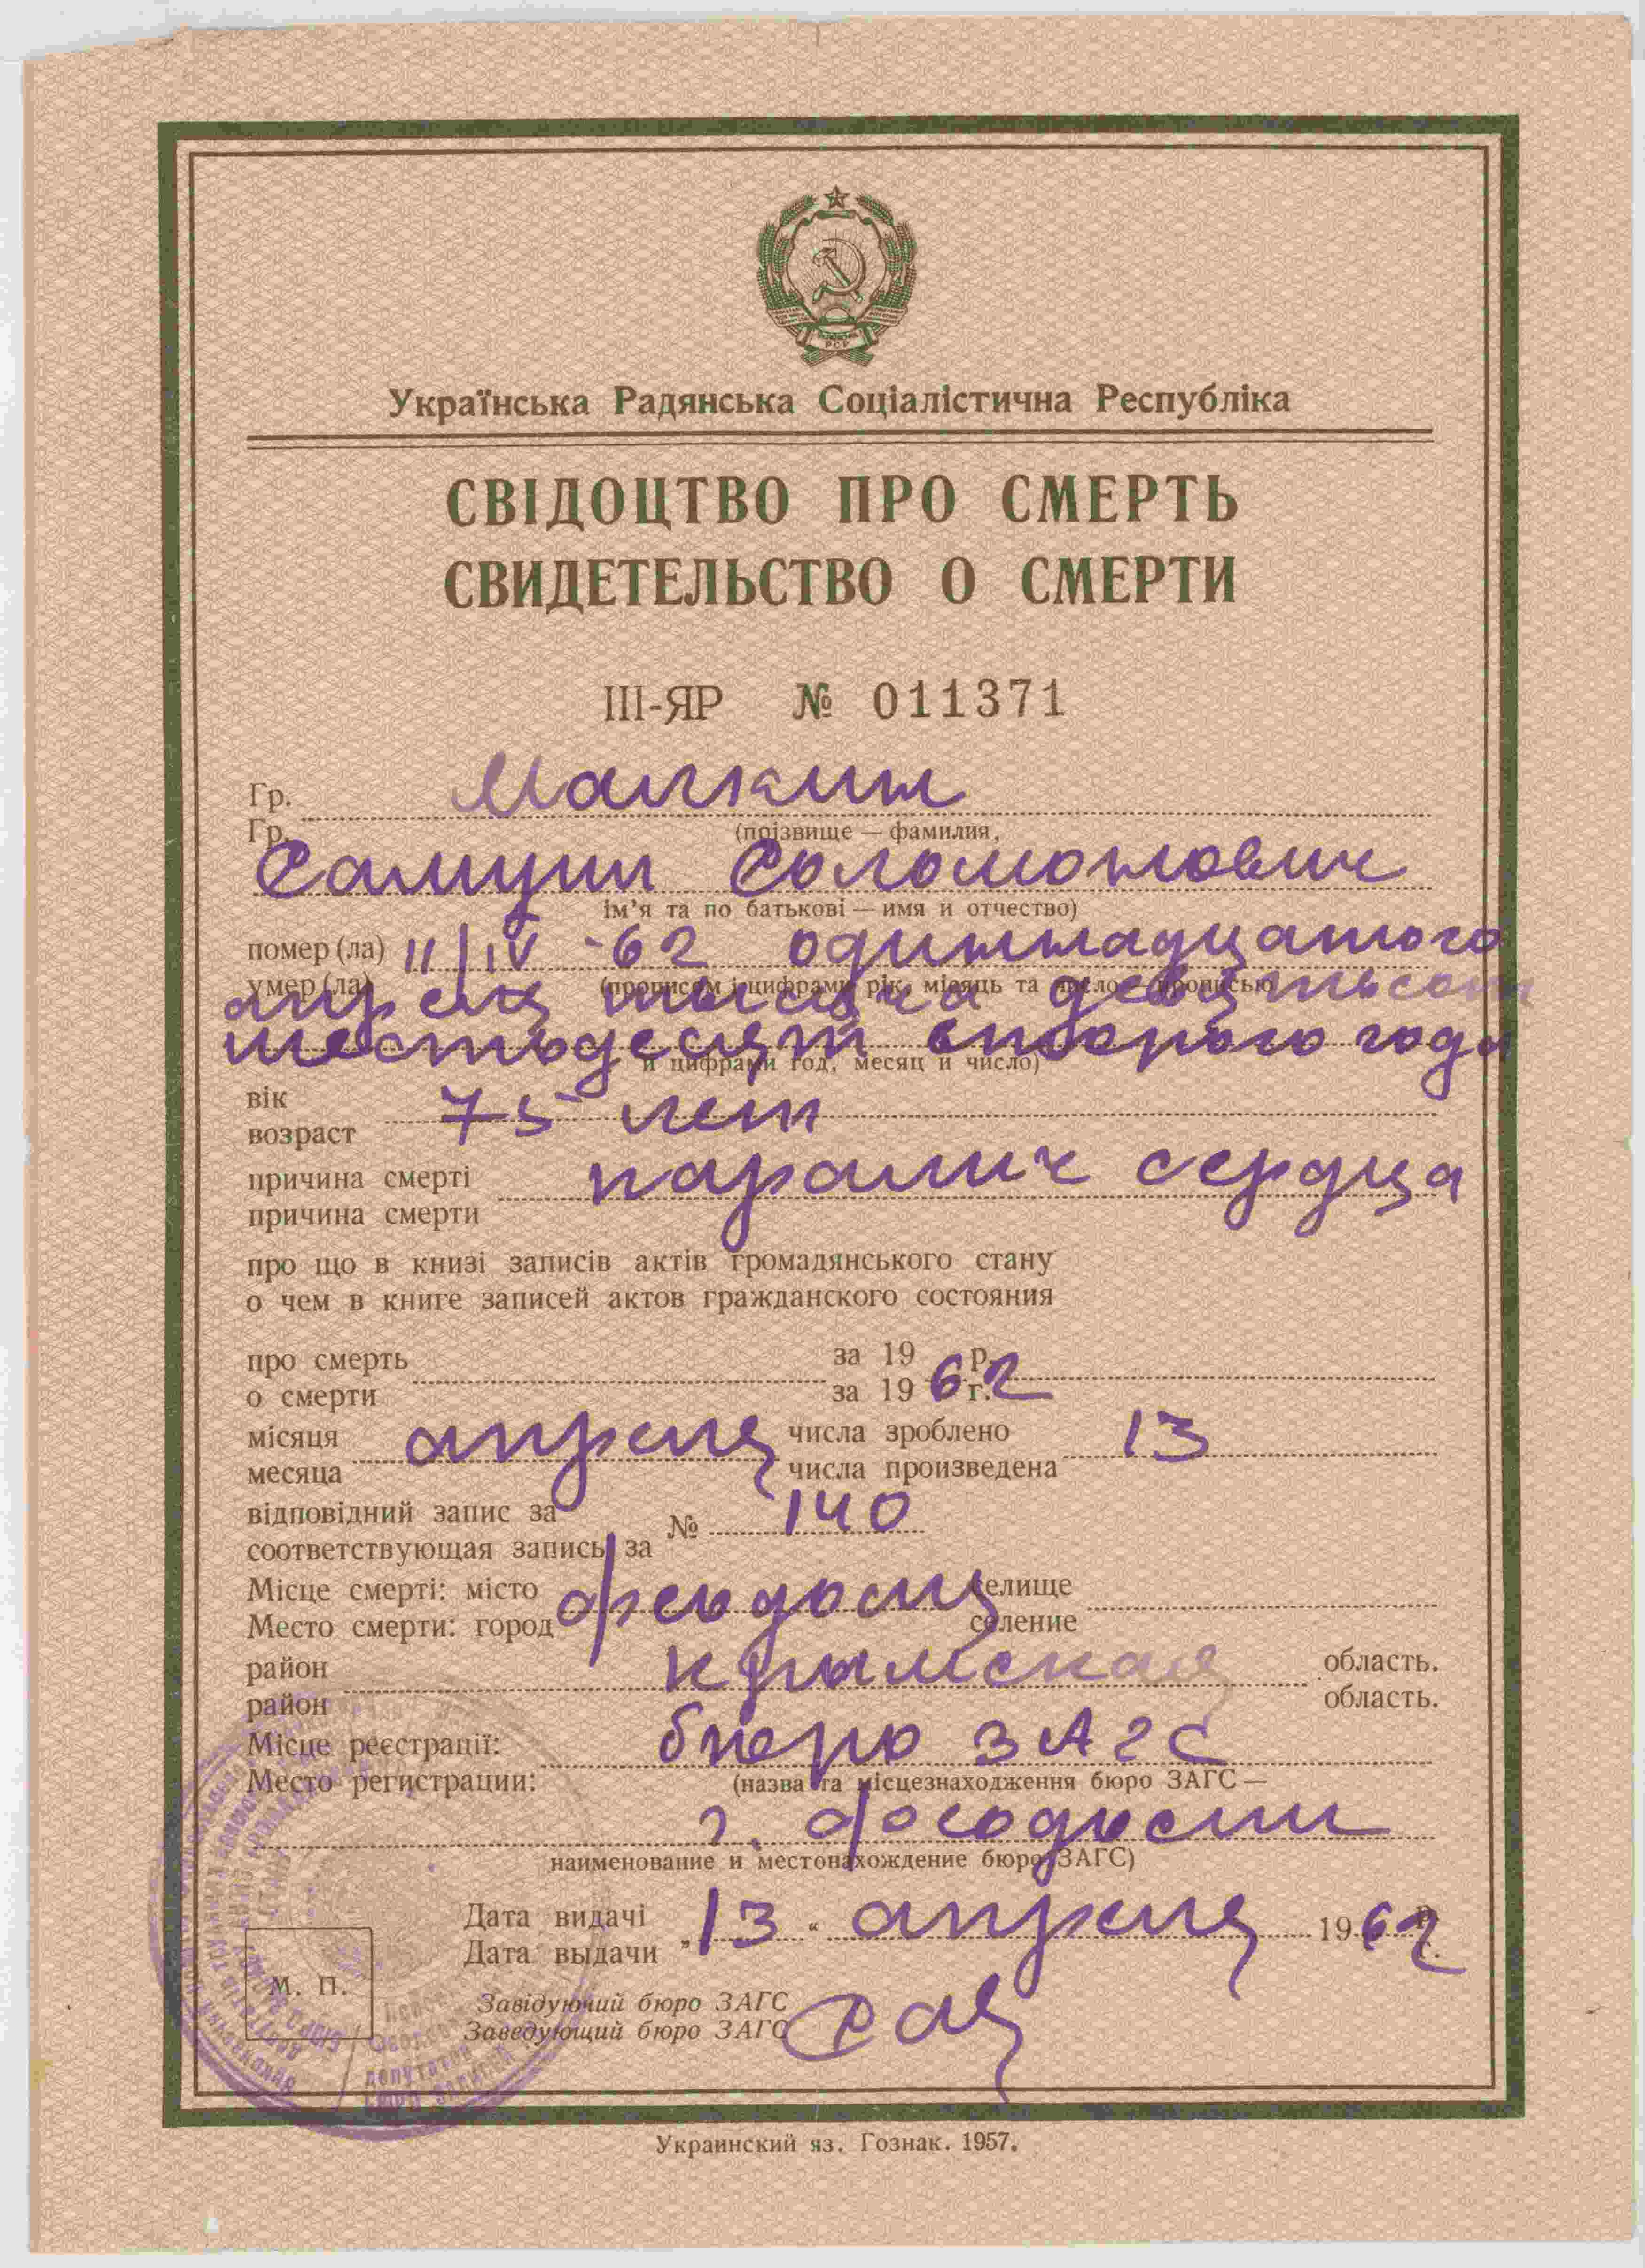 РСР
Українська Радянська Соціалістична Республіка
СВІДОЦТВО ПРО СМЕРТЬ
СВИДЕТЕЛЬСТВО О СМЕРТИ
III-ЯР № 011371
Гр. Малкин
Гр.
(прізвище — фамилия,
Самуил Соломонович
ім’я та по батькові — имя и отчество)
помер (ла) 11/IV -62 одиннадцатого
умер (ла) (прописом і цифрами рік, місяць та число — прописью
апреля тысяча девятьсот
шестьдесят второго года
и цифрами год, месяц и число)
вік
возраст 75 лет
причина смерті паралич сердца
причина смерти
про що в книзі записів актів громадянського стану
о чем в книге записей актов гражданского состояния
про смерть за 19 р.
о смерти за 1962 г.
місяця апреля числа зроблено 13
месяца числа произведена
відповідний запис за № 140
соответствующая запись за
Місце смерті: місто Феодосия селище
Место смерти: город селение
район Крымская область.
район область.
Місце реєстрації: бюро ЗАГС
Место регистрации: (назва та місцезнаходження бюро ЗАГС —
г. Феодосии
наименование и местонахождение бюро ЗАГС)
Дата видачі „13“ апреля 1962 р.
Дата выдачи г.
М. П.
Завідуючий бюро ЗАГС
Заведующий бюро ЗАГС
Украинский яз. Гознак. 1957.